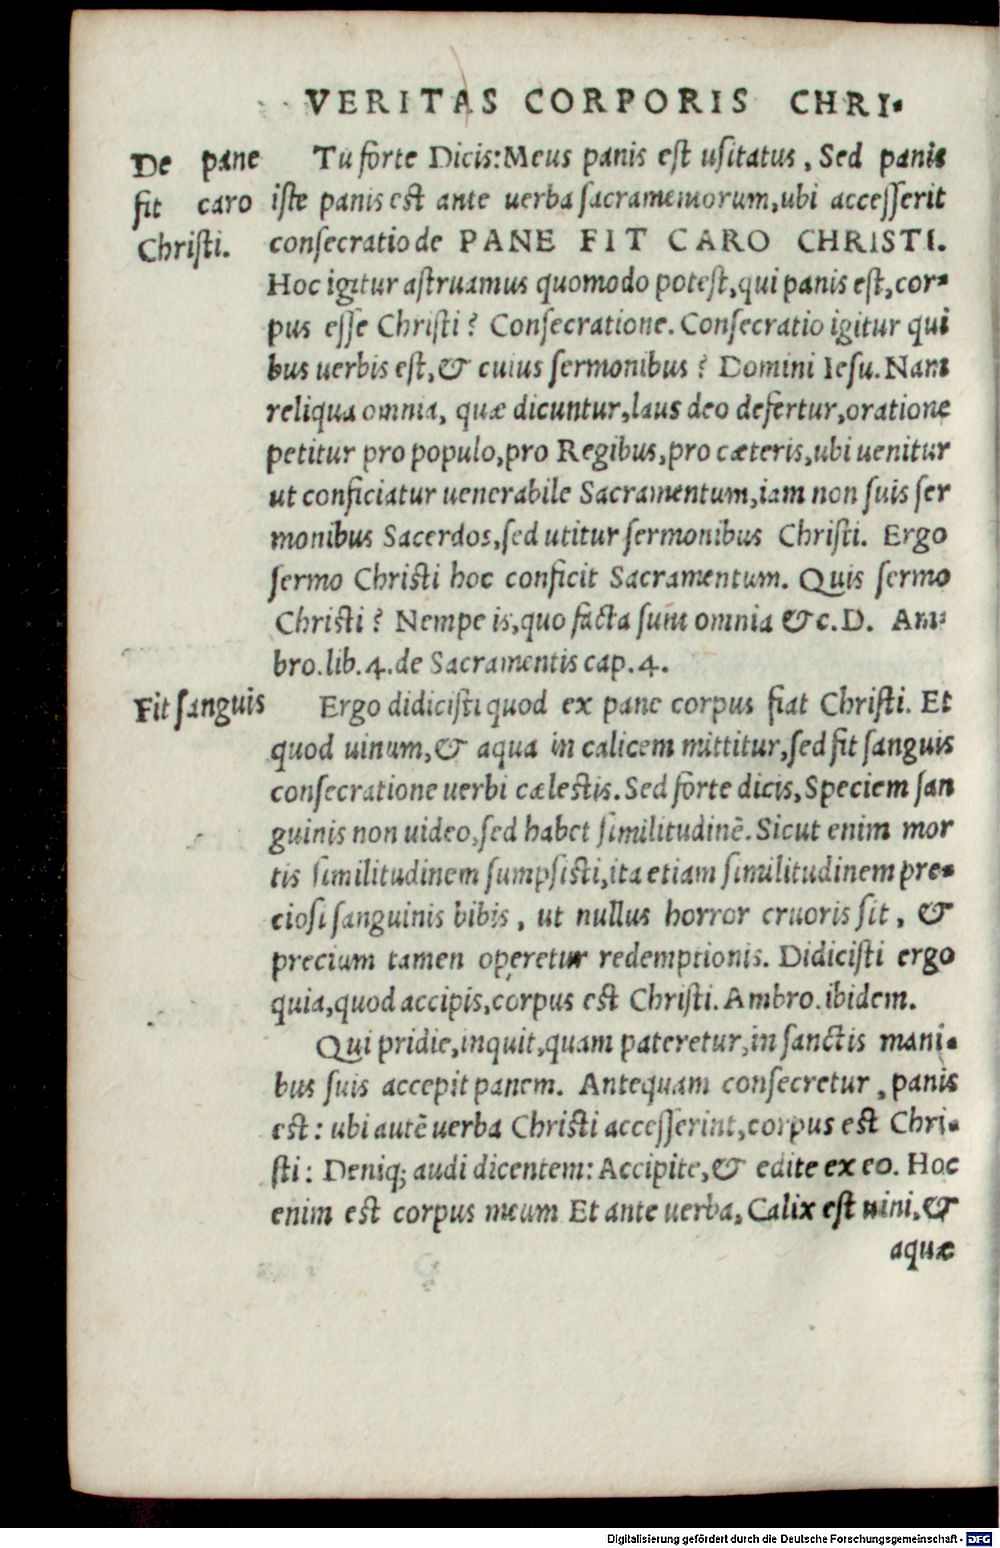 VERITAS CORPORIS CHRI-
De pane
fit caro
Christi.
Tu forte Dicis: Meus panis est usitatus, Sed panis
iste panis est ante uerba sacramentorum, ubi accesserit
consecratio de PANE FIT CARO CHRISTI.
Hoc igitur astruamus quomodo potest, qui panis est, cor-
pus esse Christi? Consecratione. Consecratio igitur qui
bus uerbis est, & cuius sermonibus? Domini Iesu. Nam
reliqua omnia, quæ dicuntur, laus deo defertur, oratione
petitur pro populo, pro Regibus, pro cæteris, ubi uenitur
ut conficiatur uenerabile Sacramentum, iam non suis ser
monibus Sacerdos, sed utitur sermonibus Christi. Ergo
sermo Christi hoc conficit Sacramentum. Quis sermo
Christi? Nempe is, quo facta sunt omnia &c. D. Am-
bro. lib. 4. de Sacramentis cap. 4.
Fit sanguis
Ergo didicisti quod ex pane corpus fiat Christi. Et
quod uinum, & aqua in calicem mittitur, sed fit sanguis
consecratione uerbi cælestis. Sed forte dicis, Speciem san
guinis non uideo, sed habet similitudinē. Sicut enim mor
tis similitudinem sumpsisti, ita etiam similitudinem pre-
ciosi sanguinis bibis, ut nullus horror cruoris sit, &
precium tamen operetur redemptionis. Didicisti ergo
quia, quod accipis, corpus est Christi. Ambro. ibidem.
Qui pridie, inquit, quam pateretur, in sanctis mani-
bus suis accepit panem. Antequam consecretur, panis
est: ubi autē uerba Christi accesserint, corpus est Chri-
sti: Deniq; audi dicentem: Accipite, & edite ex eo. Hoc
enim est corpus meum Et ante uerba, Calix est uini, &
aquæ
Digitalisierung gefördert durch die Deutsche Forschungsgemeinschaft - DFG